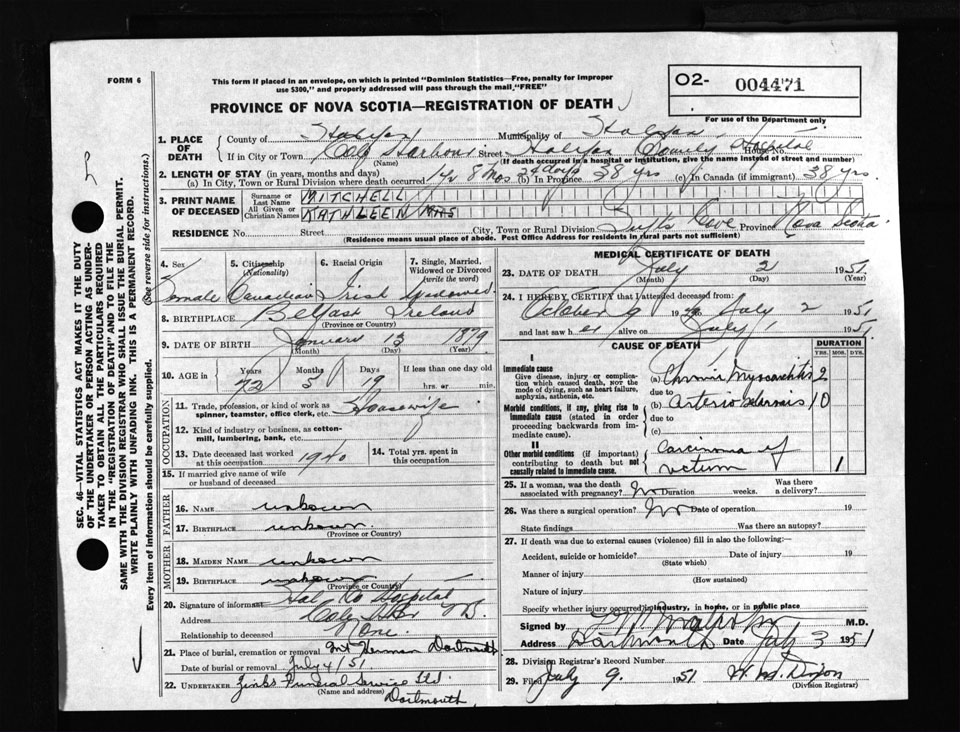 FORM 6
This form if placed in an envelope, on which is printed "Dominion Statistics—Free, penalty for improper
use $300," and properly addressed will pass through the mail, "FREE"
PROVINCE OF NOVA SCOTIA—REGISTRATION OF DEATH
O2- 004471
For use of the Department only
SEC. 46—VITAL STATISTICS ACT MAKES IT THE DUTY
OF THE UNDERTAKER OR PERSON ACTING AS UNDER-
TAKER TO OBTAIN ALL THE PARTICULARS REQUIRED
IN THE "REGISTRATION OF DEATH" AND TO FILE THE
SAME WITH THE DIVISION REGISTRAR WHO SHALL ISSUE THE BURIAL PERMIT.
WRITE PLAINLY WITH UNFADING INK. THIS IS A PERMANENT RECORD.
Every item of information should be carefully supplied. (See reverse side for instructions.)
1. PLACE OF DEATH
County of Halifax Municipality of Halifax
If in City or Town Cole Harbour Street Halifax County Hospital House No.
(Name) (If death occurred in a hospital or institution, give the name instead of street and number)
2. LENGTH OF STAY (in years, months and days)
(a) In City, Town or Rural Division where death occurred 1 yr 8 mos 24 days (b) In Province 38 yrs (c) In Canada (if immigrant) 38 yrs.
3. PRINT NAME OF DECEASED
Surname or Last Name MITCHELL
All Given or Christian Names KATHLEEN MRS
RESIDENCE No. Street City, Town or Rural Division Tufts Cove Province Nova Scotia
(Residence means usual place of abode. Post Office Address for residents in rural parts not sufficient)
4. Sex Female
5. Citizenship (Nationality) Canadian
6. Racial Origin Irish
7. Single, Married, Widowed or Divorced (write the word) Widowed
8. BIRTHPLACE Belfast Ireland
(Province or Country)
9. DATE OF BIRTH January 13 1879
(Month) (Day) (Year)
10. AGE in Years 72 Months 5 Days 19 If less than one day old
hrs. or min.
OCCUPATION
11. Trade, profession, or kind of work as
spinner, teamster, office clerk, etc. Housewife
12. Kind of industry or business, as cotton-
mill, lumbering, bank, etc.
13. Date deceased last worked at this occupation 1940
14. Total yrs. spent in this occupation
15. If married give name of wife
or husband of deceased
FATHER
16. NAME unknown
17. BIRTHPLACE unknown.
(Province or Country)
MOTHER
18. MAIDEN NAME unknown
19. BIRTHPLACE unknown
(Province or Country)
20. Signature of informant Hal. Co Hospital
Address Cole Hbr NS.
Relationship to deceased None
21. Place of burial, cremation or removal Mt Herman Dartmouth
Date of burial or removal July 4/51
22. UNDERTAKER Zinks Funeral Service Ltd.
(Name and address) Dartmouth
MEDICAL CERTIFICATE OF DEATH
23. DATE OF DEATH July 2 1951
(Month) (Day) (Year)
24. I HEREBY CERTIFY that I attended deceased from:
October 9 19 to July 2 1951
and last saw her alive on July 1 1951
CAUSE OF DEATH DURATION
YRS. MOS. DYS.
I
Immediate cause
Give disease, injury or complica-
tion which caused death, NOT the
mode of dying, such as heart failure,
asphyxia, asthenia, etc.
(a) Chronic Myocarditis 2
due to
Morbid conditions, if any, giving rise to
immediate cause (stated in order
proceeding backwards from im-
mediate cause).
(b) Arterio sclerosis 10
due to
(c)
II
Other morbid conditions (if important)
contributing to death but not
causally related to immediate cause.
Carcinoma of
rectum 1
25. If a woman, was the death associated with pregnancy? No Duration weeks. Was there a delivery?
26. Was there a surgical operation? No Date of operation 19
State findings Was there an autopsy?
27. If death was due to external causes (violence) fill in also the following:—
Accident, suicide or homicide? Date of injury 19
(State which)
Manner of injury
(How sustained)
Nature of injury
Specify whether injury occurred in industry, in home, or in public place
Signed by M.D.
Address Dartmouth Date July 3 1951
28. Division Registrar's Record Number
29. Filed July 9. 1951 Dixon
(Division Registrar)